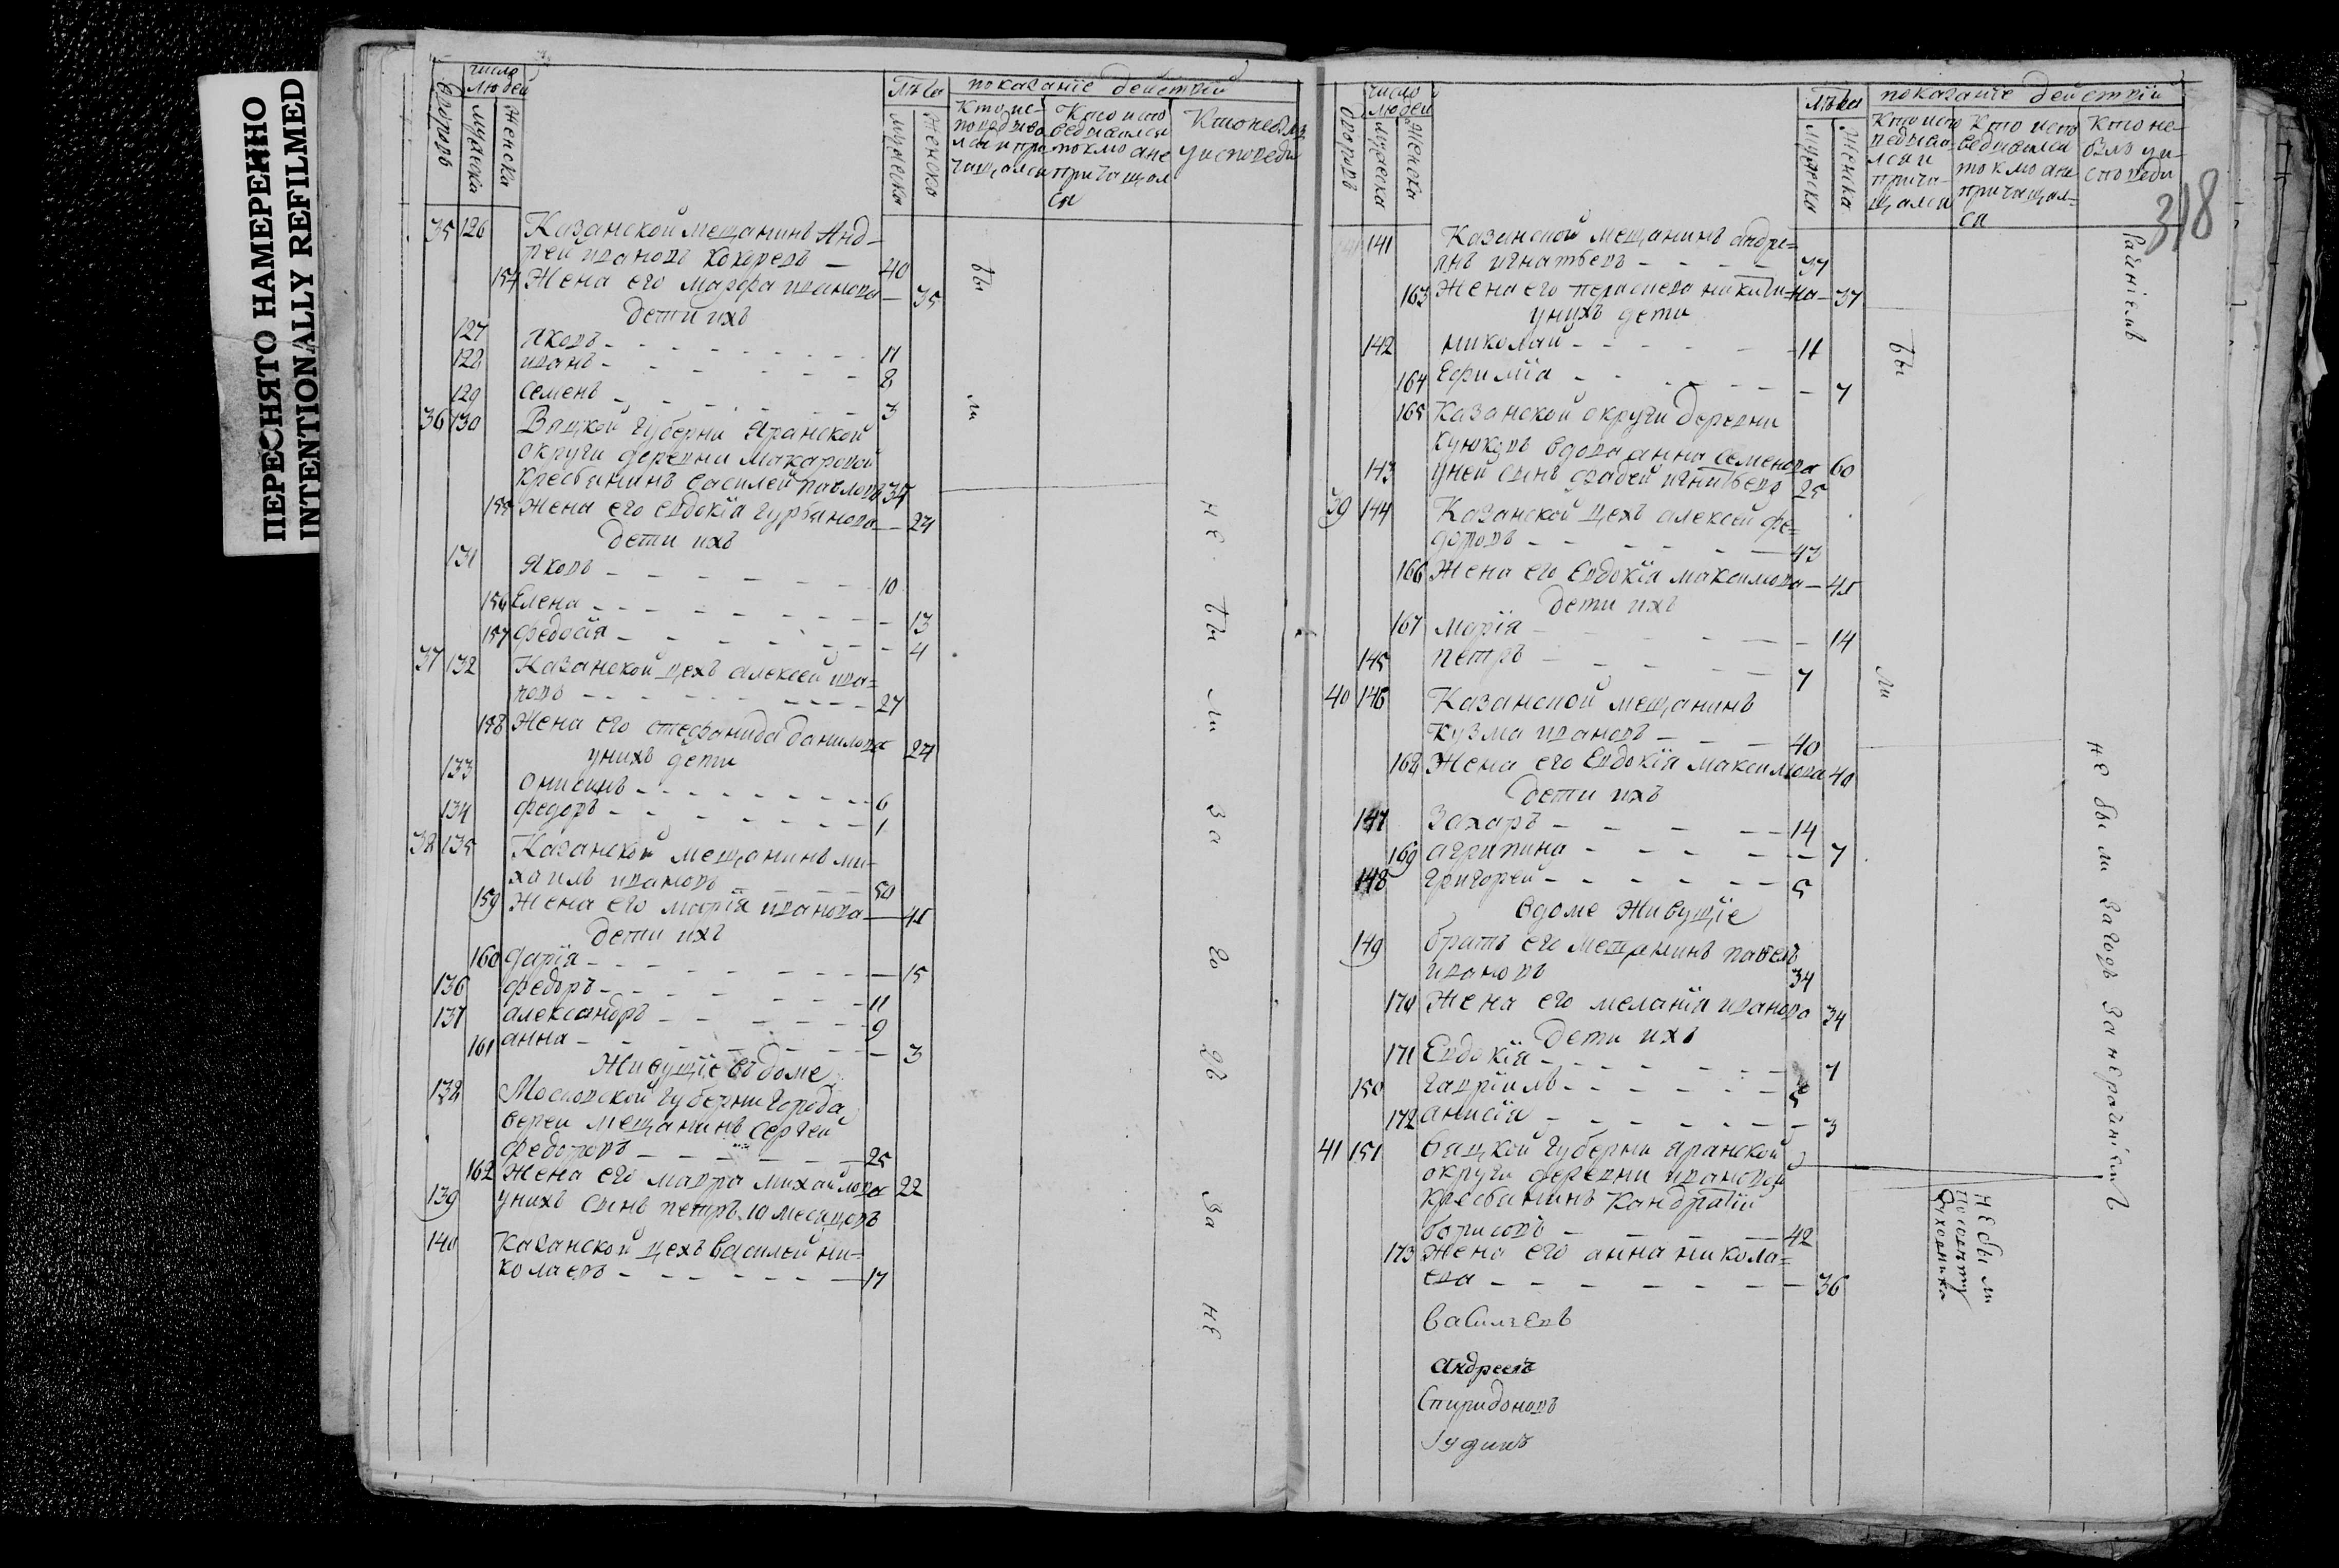 ПЕРЕСНЯТО НАМЕРЕННО
INTENTIONALLY REFILMED
число людей
Лѣта
показанiе действiй
дворовъ
мужеска
женска
мужеска
женска
Кто исповедывался и причащался
Кто исповедывался токмо а не причащался
Кто не был у исповеди
35 126 Казанской мещанинъ Анд-
рей ивановъ Кокоревъ — 40
154 Жена его марфа иванова — 35
дети ихъ
127 яковъ 11
128 иванъ 8
129 семенъ 3
36 130 Вяцкой губерни Яранской
округи деревни макаровой
кресьянинъ василей павловъ 34
155 жена его евдокiа гурьянова — 24
дети ихъ
131 яковъ 10
156 Елена 13
157 федосiя 4
37 132 Казанской цехъ алексей ива=
новъ 27
158 Жена его стефанида данилова 24
унихъ дети
133 онисимъ 6
134 федоръ 1
38 135 Казанской мещанинъ ми-
хаилъ ивановъ 50
159 Жена его марiя иванова — 41
дети ихъ
160 дарiя 15
136 федоръ 11
137 александръ 9
161 анна 3
Живущiе въ доме
138 Московской губерни города
вереи мещанинъ сергей
федоровъ 25
162 Жена его мавра михайлова 22
139 унихъ сынъ петръ 10 месяцовъ
140 Казанской цехъ василей ни=
колаевъ 17
бы
ли
не бы ли за го дъ за не
318
число людей
Лѣта
показанiе действiй
дворовъ
мужеска
женска
мужеска
женска
Кто исповедывался и причащался
Кто исповедывался токмо а не причащался
Кто не былъ у исповеди
141 Казанской мещанинъ андре=
янъ игнатьевъ 37
163 Жена его никитина — 37
унихъ дети
142 николай 11
164 Ефимiа 7
165 Казанской округи деревни
вдова анна семенова 60
143 уней сынъ фадей игнатьевъ 25
39 144 Казанской цехъ алексей фе=
доровъ 43
166 Жена его Евдокiа максимова — 41
дети ихъ
167 марiя 14
145 петръ 7
40 146 Казанской мещанинъ
кузма ивановъ 40
168 Жена его Евдокiя максимова 40
дети ихъ
147 захаръ 14
169 агрипина 7
148 григорей 5
вдоме живущiе
149 братъ его мещанинъ павелъ
ивановъ 34
170 Жена его меланiя иванова 34
дети ихъ
171 Евдокiя 7
150 гаврiилъ 5
172 анисiя 3
41 151 вяцкой губерни яранской
округи деревни ивановой
кресьянинъ Кандратiй
борисовъ 42
173 Жена его анна никола=
ева 36
васильевъ
андреевъ
спиридоновъ
бы
ли
не были загодъ занерайнiемъ
не были